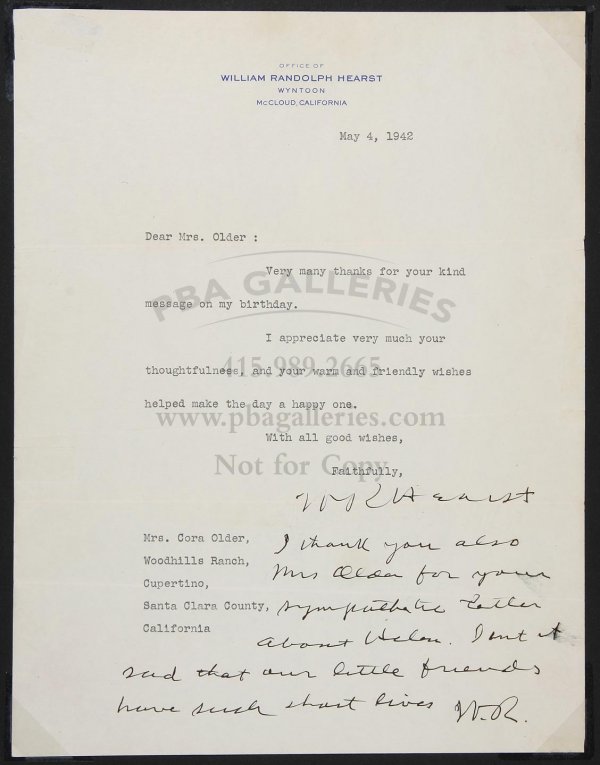 OFFICE OF
WILLIAM RANDOLPH HEARST
WYNTOON
McCLOUD, CALIFORNIA
May 4, 1942
Dear Mrs. Older :
Very many thanks for your kind
message on my birthday.
PBA GALLERIES
I appreciate very much your
415.989.2665
thoughtfulness, and your warm and friendly wishes
helped make the day a happy one.
www.pbagalleries.com
With all good wishes,
Not for Copy
Faithfully,
W R Hearst
Mrs. Cora Older,
Woodhills Ranch,
Cupertino,
Santa Clara County,
California
I thank you also
Mrs Older for your
sympathetic letter
about Helen. Isnt it
sad that our little friends
have such short lives
W.R.